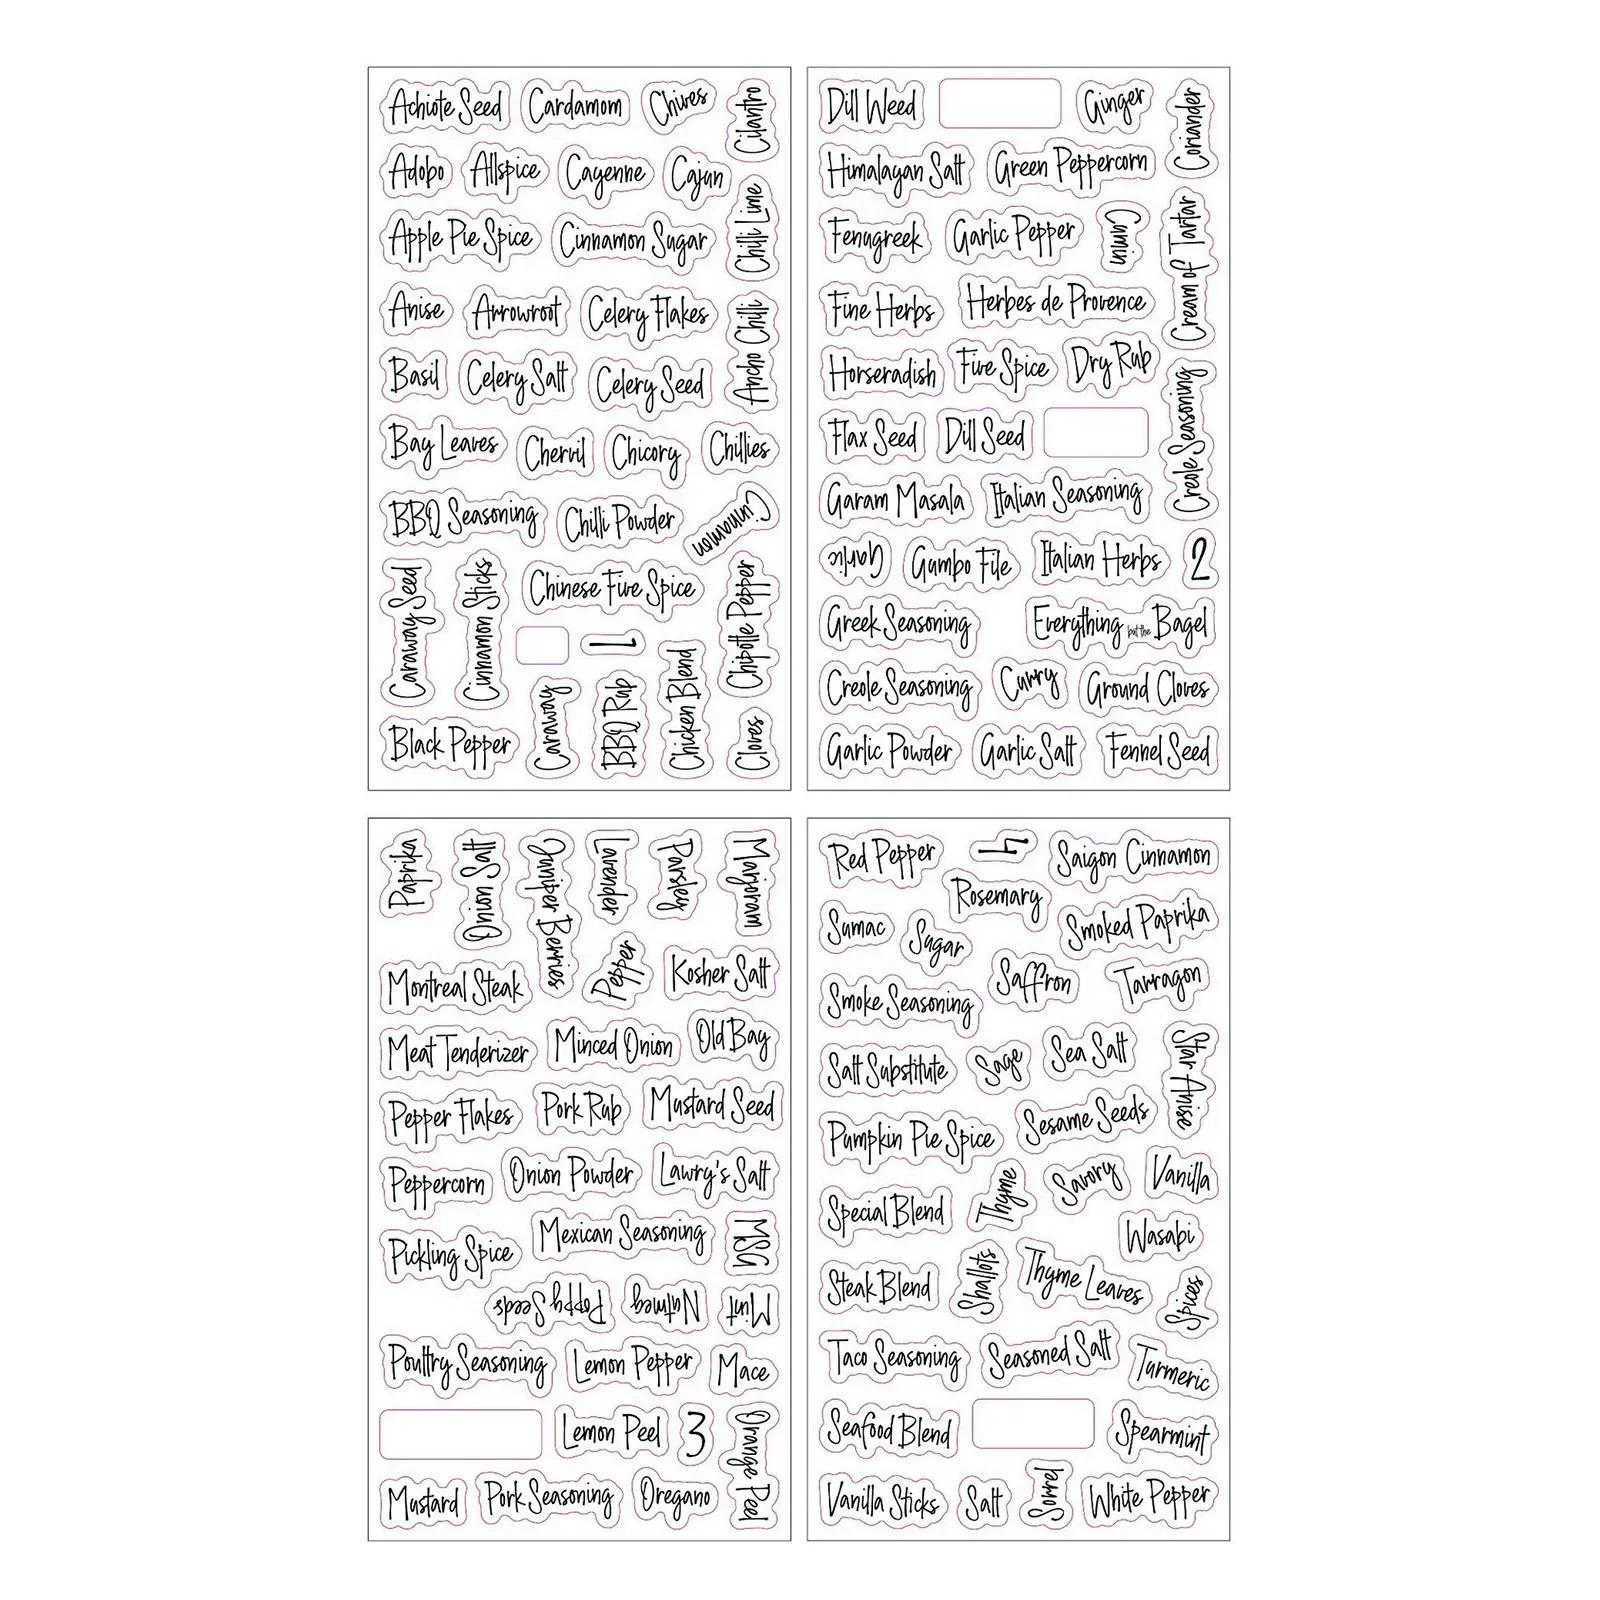 Achiote Seed
Cardamom
Chives
Cilantro
Adobo
Allspice
Cayenne
Cajun
Chilli Lime
Apple Pie Spice
Cinnamon Sugar
Anise
Arrowroot
Celery Flakes
Ancho Chilli
Basil
Celery Salt
Celery Seed
Bay Leaves
Chervil
Chicory
Chillies
BBQ Seasoning
Chilli Powder
Cinnamon
Caraway Seed
Cinnamon Sticks
Chinese Five Spice
Chipotle Pepper
1
Black Pepper
Caraway
BBQ Rub
Chicken Blend
Cloves
Dill Weed
Ginger
Coriander
Himalayan Salt
Green Peppercorn
Fenugreek
Garlic Pepper
Cumin
Cream of Tartar
Fine Herbs
Herbes de Provence
Horseradish
Five Spice
Dry Rub
Creole Seasoning
Flax Seed
Dill Seed
Garam Masala
Italian Seasoning
Garlic
Gumbo File
Italian Herbs
2
Greek Seasoning
Everything but the Bagel
Creole Seasoning
Curry
Ground Cloves
Garlic Powder
Garlic Salt
Fennel Seed
Paprika
Onion Salt
Juniper Berries
Lavender
Parsley
Marjoram
Montreal Steak
Pepper
Kosher Salt
Meat Tenderizer
Minced Onion
Old Bay
Pepper Flakes
Pork Rub
Mustard Seed
Peppercorn
Onion Powder
Lawry's Salt
Pickling Spice
Mexican Seasoning
MSG
Poppy Seeds
Nutmeg
Mint
Poultry Seasoning
Lemon Pepper
Mace
Lemon Peel
3
Orange Peel
Mustard
Pork Seasoning
Oregano
Red Pepper
4
Saigon Cinnamon
Rosemary
Sumac
Sugar
Smoked Paprika
Saffron
Tarragon
Smoke Seasoning
Salt Substitute
Sage
Sea Salt
Star Anise
Pumpkin Pie Spice
Sesame Seeds
Special Blend
Thyme
Savory
Vanilla
Wasabi
Steak Blend
Shallots
Thyme Leaves
Spices
Taco Seasoning
Seasoned Salt
Turmeric
Seafood Blend
Spearmint
Vanilla Sticks
Salt
Sorrel
White Pepper